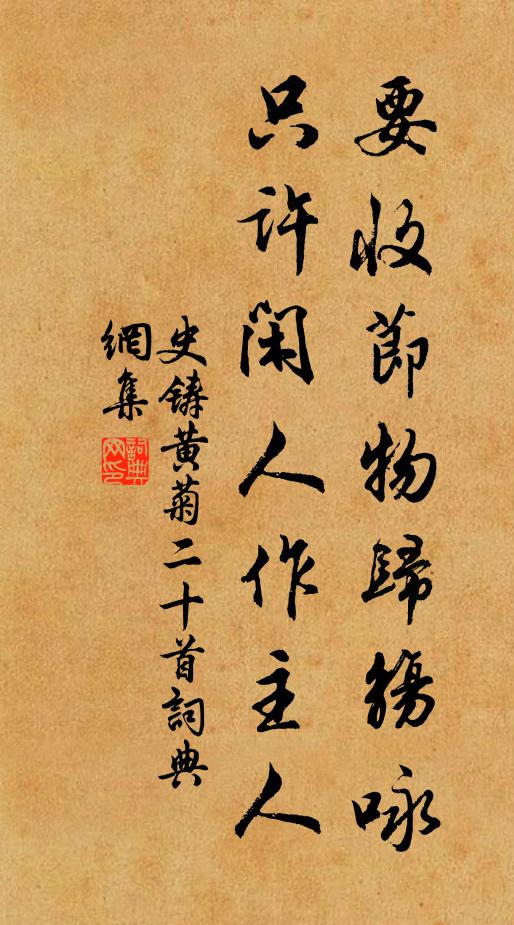 要收節物歸觴咏
只許閑人作主人
史鑄黃菊二十首詞典
網集
詞典
网印